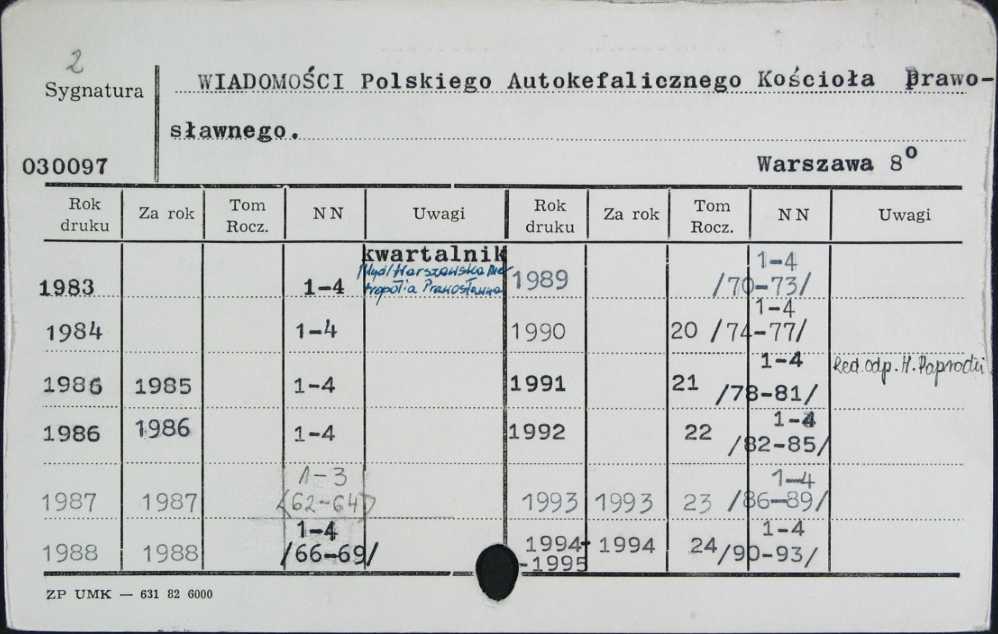 2
Sygnatura
WIADOMOŚCI Polskiego Autokefalicznego Kościoła Prawo-
sławnego.
030097
Warszawa 8°
Rok druku Za rok Tom Rocz. NN Uwagi Rok druku Za rok Tom Rocz. NN Uwagi
kwartalnik
1983 1-4 Wyd/Warszawska Me-
tropolia Prawosławna
1989 1-4
/70-73/
1984 1-4
1990 20 1-4
/74-77/
1986 1985 1-4
1991 21 1-4
/78-81/ Red. odp. H. Paprocki
1986 1986 1-4
1992 22 1-4
/82-85/
1987 1987 1-3
(62-64)
1993 1993 23 1-4
/86-89/
1988 1988 1-4
/66-69/
1994- 1994 24 1-4
-1995 /90-93/
ZP UMK — 631 82 6000